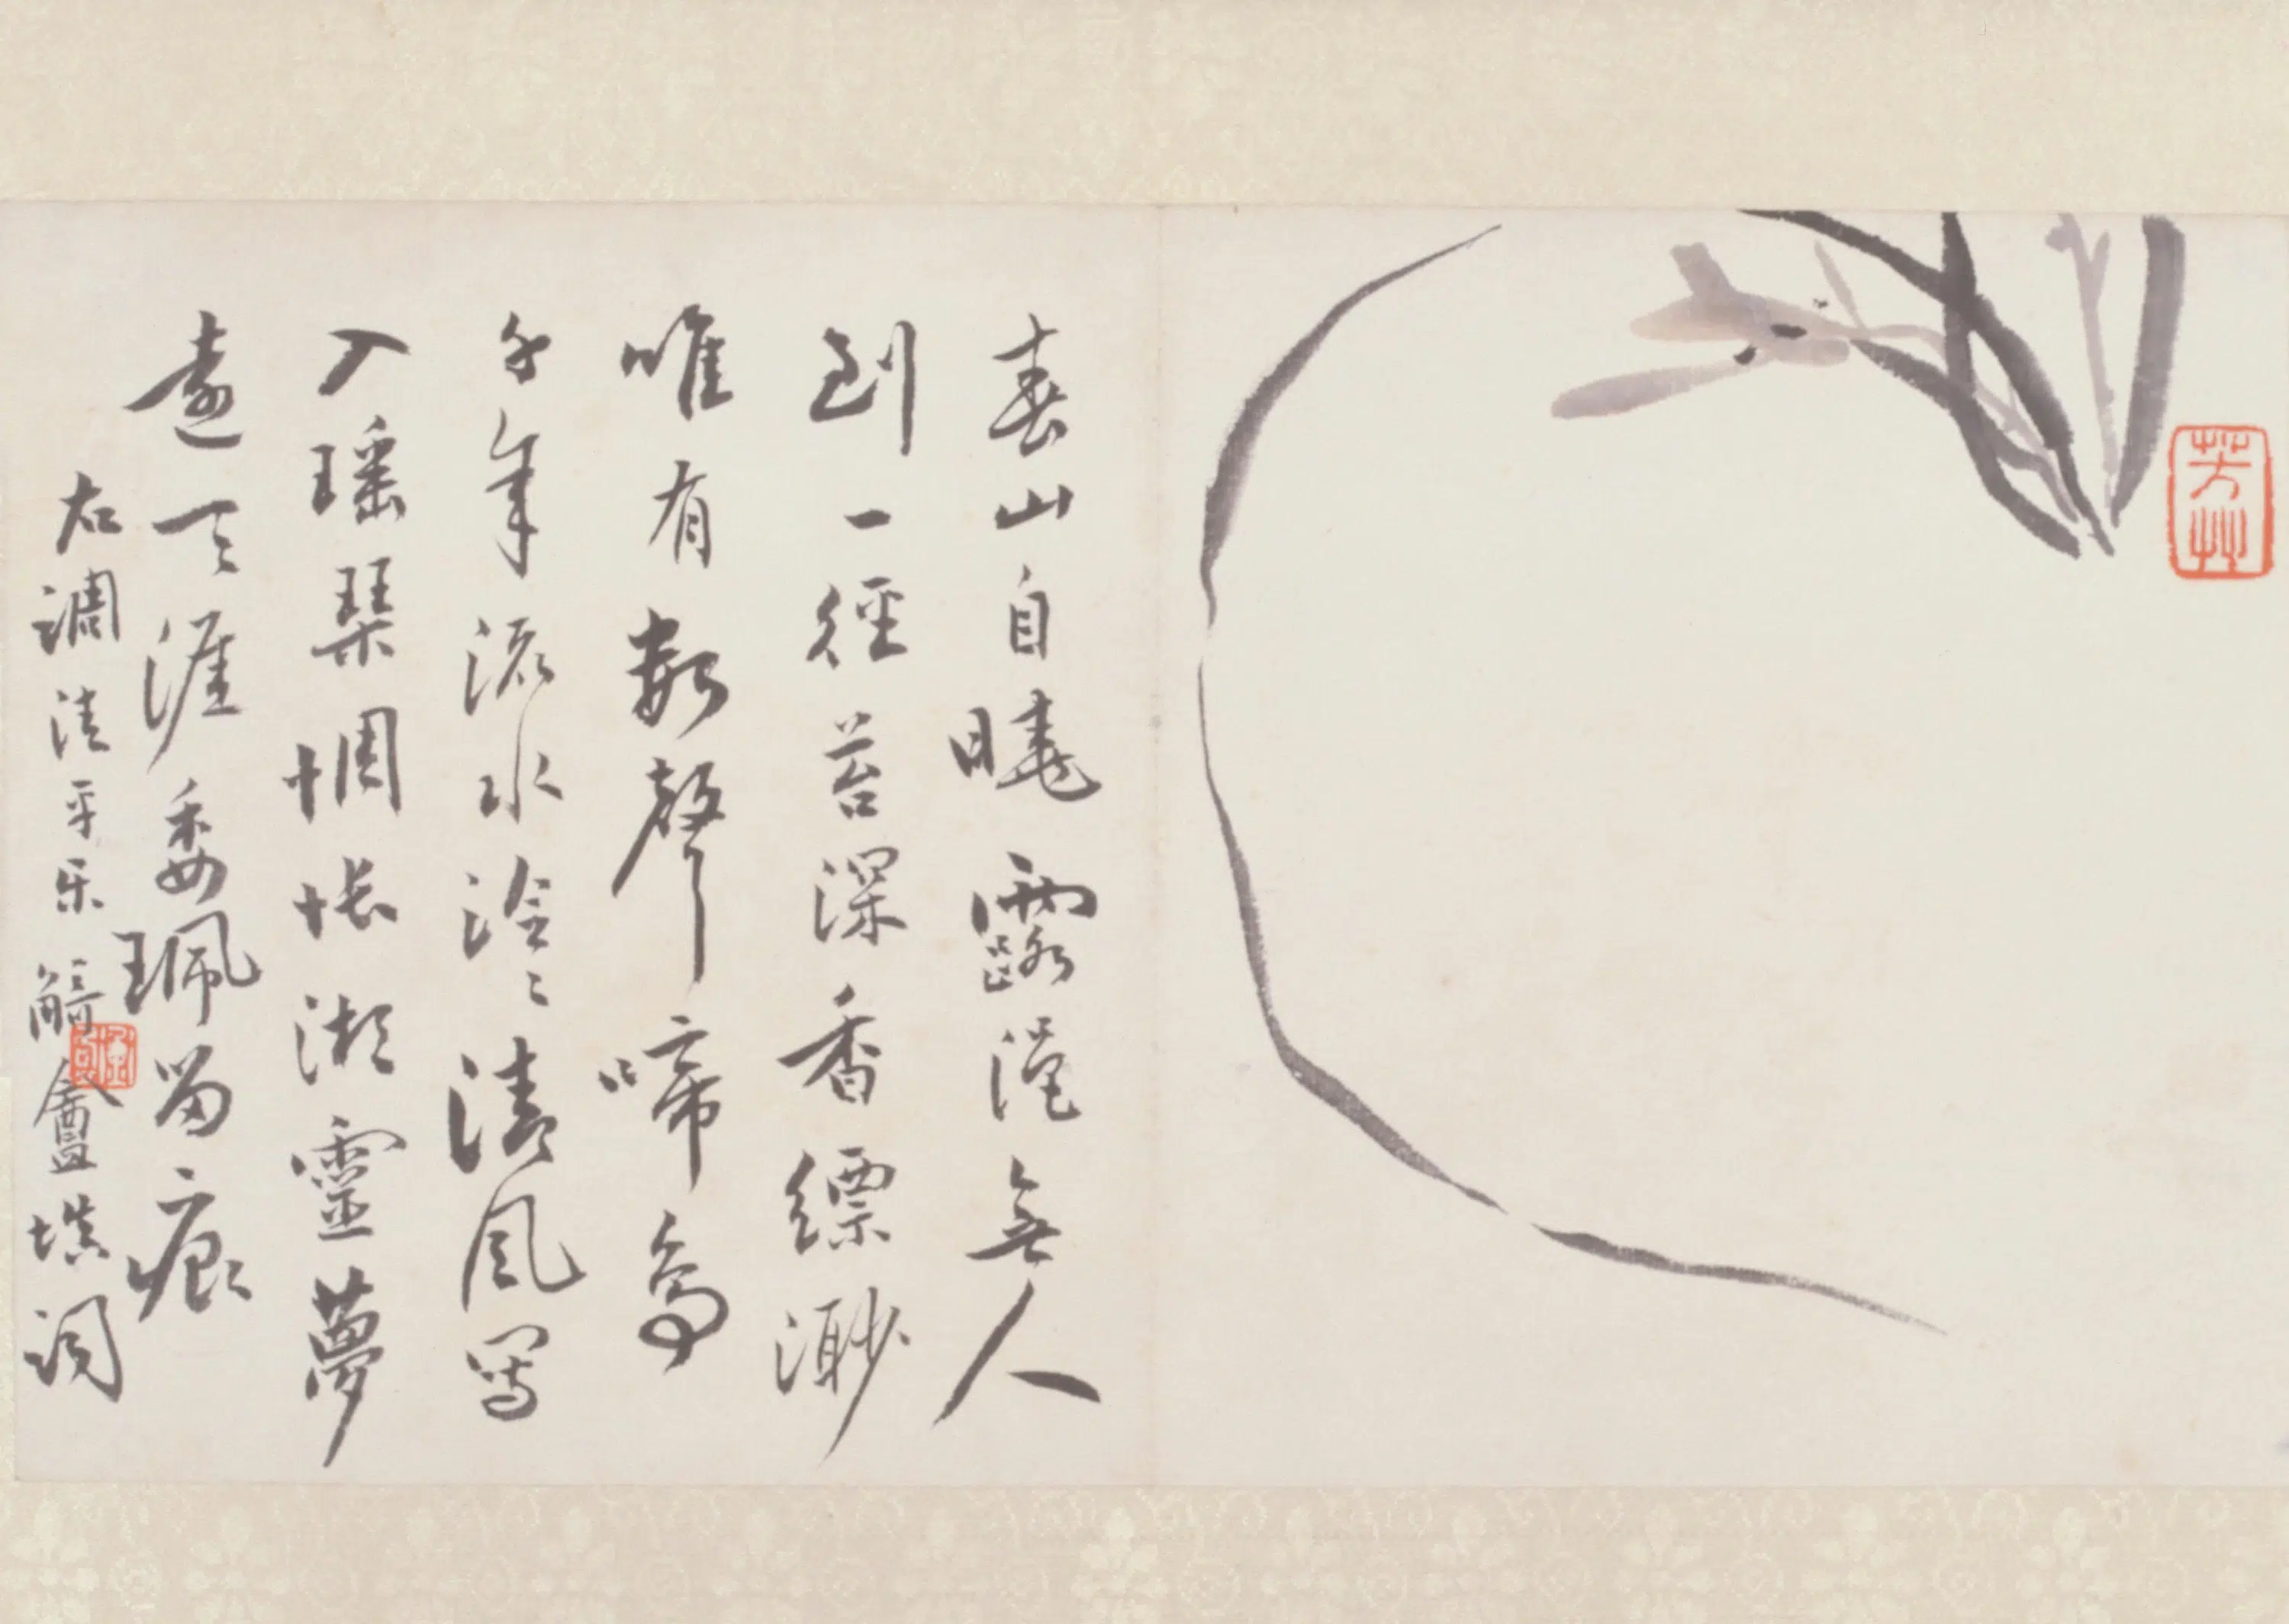 芳艸
春山自曉露溼無人
到一徑苔深香縹渺
唯有數聲啼鳥
千年流水泠〻清風寫
入瑤琴惆悵湘靈夢
遠天涯委珮留痕
右調清平乐 觭盦填詞